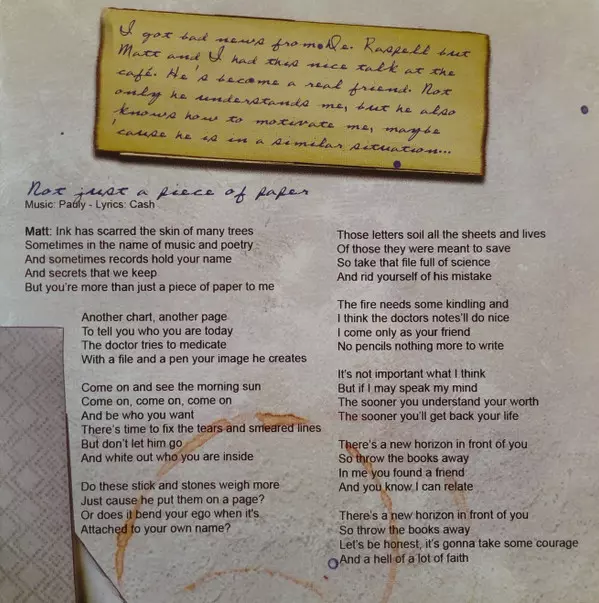 I got bad news from Dr. Raspell but
Matt and I had this nice talk at the
café. He's become a real friend. Not
only he understands me, but he also
knows how to motivate me, maybe
'cause he is in a similar situation...
Not just a piece of paper
Music: Pauly - Lyrics: Cash
Matt: Ink has scarred the skin of many trees
Sometimes in the name of music and poetry
And sometimes records hold your name
And secrets that we keep
But you're more than just a piece of paper to me
Another chart, another page
To tell you who you are today
The doctor tries to medicate
With a file and a pen your image he creates
Come on and see the morning sun
Come on, come on, come on
And be who you want
There's time to fix the tears and smeared lines
But don't let him go
And white out who you are inside
Do these stick and stones weigh more
Just cause he put them on a page?
Or does it bend your ego when it's
Attached to your own name?
Those letters soil all the sheets and lives
Of those they were meant to save
So take that file full of science
And rid yourself of his mistake
The fire needs some kindling and
I think the doctors notes'll do nice
I come only as your friend
No pencils nothing more to write
It's not important what I think
But if I may speak my mind
The sooner you understand your worth
The sooner you'll get back your life
There's a new horizon in front of you
So throw the books away
In me you found a friend
And you know I can relate
There's a new horizon in front of you
So throw the books away
Let's be honest, it's gonna take some courage
And a hell of a lot of faith